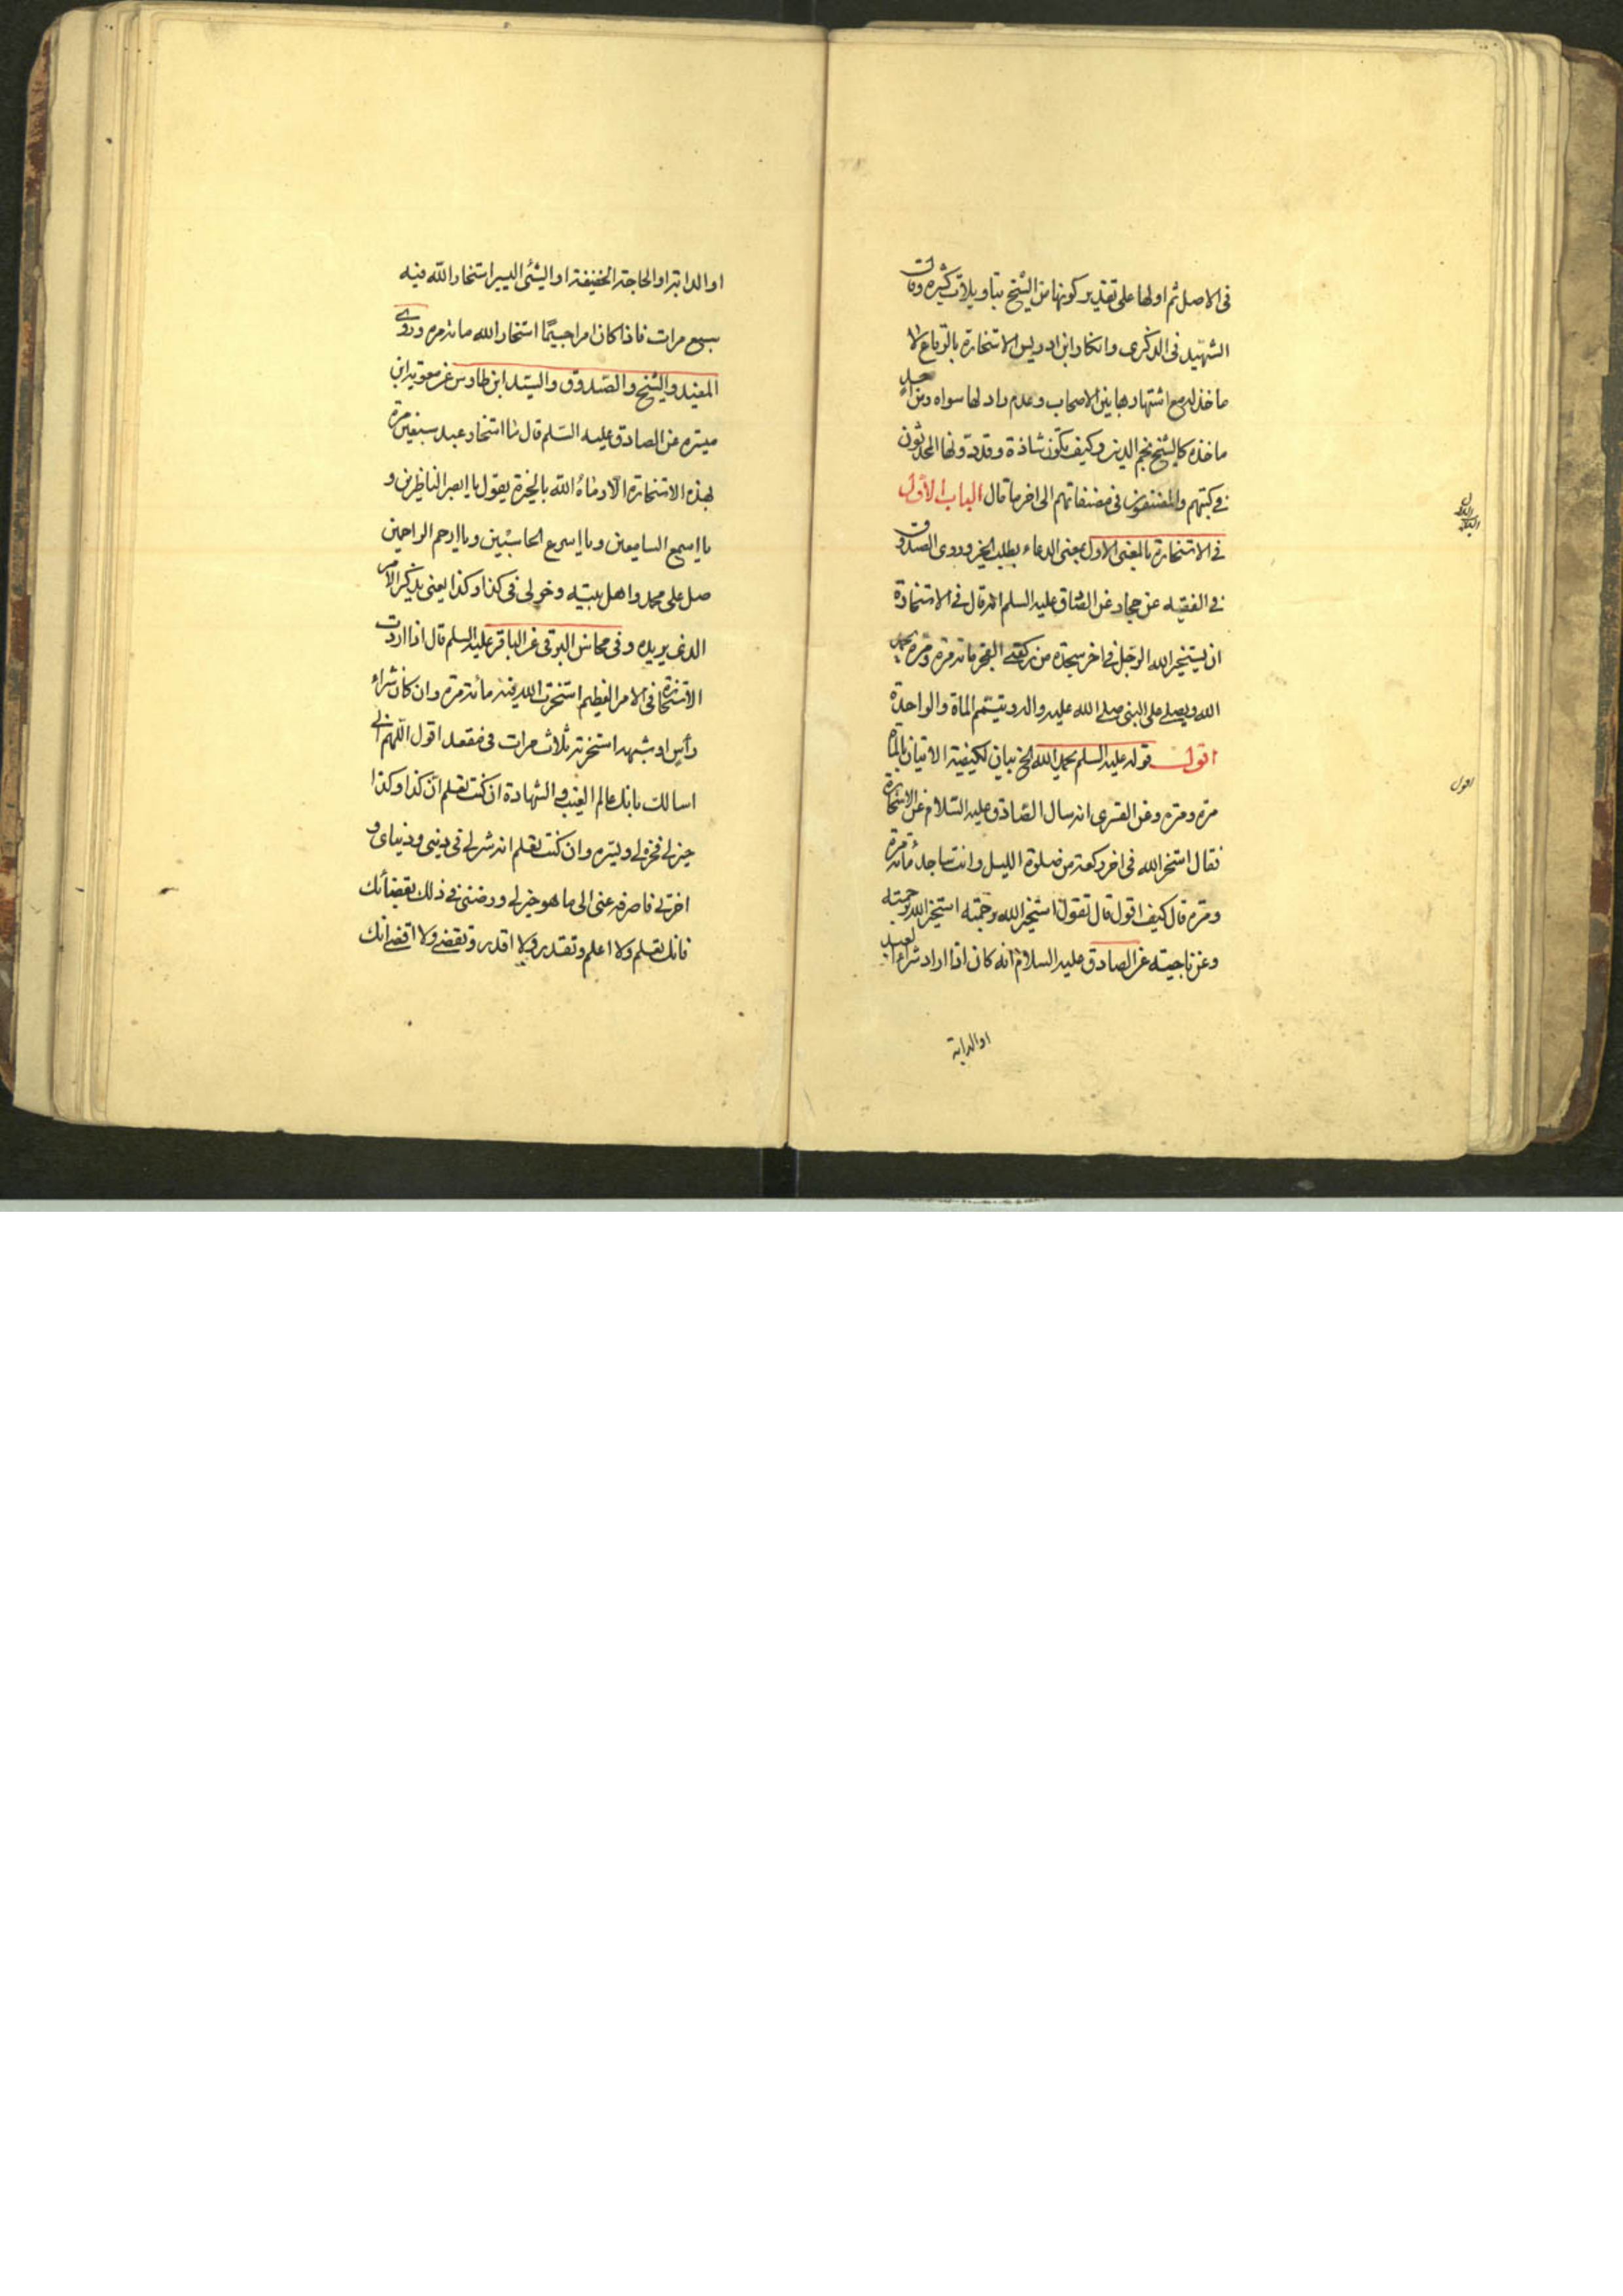 فى الاصل ثم اولها على تقدير كونها من الشيخ بتاويلات كثيره وقال
الشهيد فى الذكرى وانكار ابن ادريس الاستخارة بالرقاع لا
ماخذ له مع اشتهارها بين الاصحاب وعدم راد لها سواه ومن اخذ
ماخذه كالشيخ نجم الدين وكيف تكون شاذة وقد دونها المحدثون
فى كتبهم والمصنفون فى مصنفاتهم الى اخر ما قال الباب الاول
فى الاستخارة بالمعنى الاول بمعنى الدعاء بطلب الخير وروى الصدوق
فى الفقيه عن حماد عن الصادق عليه السلم انه قال فى الاستخارة
ان يستخير الله الرجل فى اخر سجدة من ركعتى الفجر مائة مرة ومرة بحمد
الله ويصلى على النبى صلى الله عليه واله ويتمم المأة والواحدة
اقول قوله عليه السلم بحمد الله الخ بيان لكيفية الاتيان بالمأة
مره ومره وعن القسرى انه سال الصادق عليه السلام عن الاستخارة
فقال استخر الله فى اخر ركعة من صلوة الليل وانت ساجد مأئة مرة
ومره قال كيف اقول قال تقول استخير الله برحمته استخير الله برحمته
وعن ناجيته عن الصادق عليه السلام انه كان اذا اراد شراء العبد
او الدابة
الباب الاول
اقول
او الدابة او الحاجة الخفيفة او الشئ اليسير استخار الله فيه
سبع مرات فاذا كان امرا جسيمًا استخار الله مائة مره وروى
المفيد والشيخ والصدوق والسيد ابن طاوس عن معوية ابن
ميسره عن الصادق عليه السلم قال ما استخار عبد سبعين مرة
بهذه الاستخارة الا رماه الله بالخيرة يقول يا ابصر الناظرين و
يا اسمع السامعين ويا اسرع الحاسبين ويا ارحم الراحمين
صل على محمد واهل بيته وخر لى فى كذا وكذا يعنى يذكر الامر
الذى يريده وفى محاسن البرقى عن الباقر عليه السلم قال اذا اردت
الاستخارة فى الامر العظيم استخرت الله فيه مائة مرة وان كان شراء
رأس او شبهه استخرته ثلاث مرات فى مقعد اقول اللهم انى
اسالك بانك عالم الغيب والشهادة ان كنت تعلم ان كذا وكذا
خير لى فخره لى ويسره وان كنت تعلم انه شر لى فى دينى ودنياى و
اخرتى فاصرفه عنى الى ما هو خير لى ورضنى فى ذلك بقضائك
فانك تعلم ولا اعلم وتقدر ولا اقدر وتقضى ولا اقضى انك